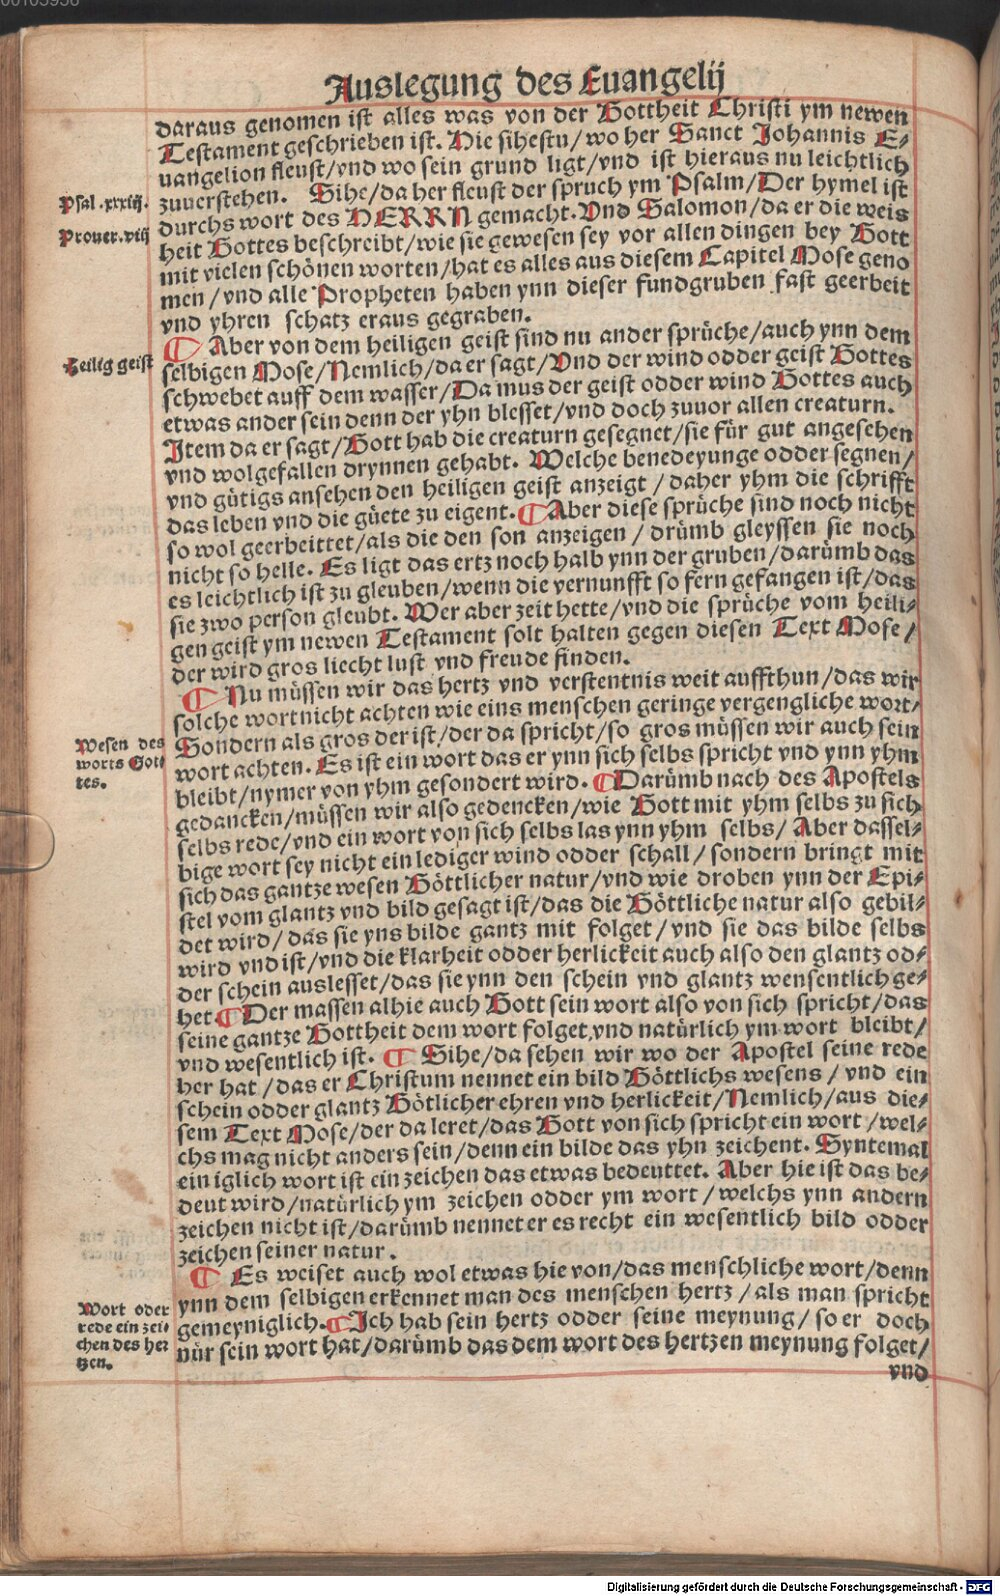 Auslegung des Euangelij
daraus genomen ist alles was von der Gottheit Christi ym newen
Testament geschrieben ist. Hie sihestu/ wo her Sanct Johannis E-
uangelion fleust/ vnd wo sein grund ligt/ vnd ist hieraus nu leichtlich
zuuerstehen. Sihe/ da her fleust der spruch ym Psalm/ Der hymel ist
Psal. xxxiij.
durchs wort des HERRN gemacht. Vnd Salomon/ da er die weis
Prouer. viij
heit Gottes beschreibt/ wie sie gewesen sey vor allen dingen bey Gott
mit vielen schönen worten/ hat es alles aus diesem Capitel Mose geno
men/ vnd alle Propheten haben ynn dieser fundgruben fast geerbeit
vnd yhren schatz eraus gegraben.
¶ Aber von dem heiligen geist sind nu ander sprüche/ auch ynn dem
Heilig geist
selbigen Mose/ Nemlich/ da er sagt/ Vnd der wind odder geist Gottes
schwebet auff dem wasser/ Da mus der geist odder wind Gottes auch
etwas ander sein denn der yhn blesset/ vnd doch zuuor allen creaturn.
Item da er sagt/ Gott hab die creaturn gesegnet/ sie für gut angesehen
vnd wolgefallen drynnen gehabt. Welche benedeyunge odder segnen/
vnd gütigs ansehen den heiligen geist anzeigt/ daher yhm die schrifft
das leben vnd die güete zu eigent. ¶ Aber diese sprüche sind noch nicht
so wol geerbeittet/ als die den son anzeigen/ drümb gleyssen sie noch
nicht so helle. Es ligt das ertz noch halb ynn der gruben/ darümb das
es leichtlich ist zu gleuben/ wenn die vernunfft so fern gefangen ist/ das
sie zwo person gleubt. Wer aber zeit hette/ vnd die sprüche vom heili-
gen geist ym newen Testament solt halten gegen diesen Text Mose/
der wird gros liecht lust vnd freude finden.
¶ Nu müssen wir das hertz vnd verstentnis weit auffthun/ das wir
solche wort nicht achten wie eins menschen geringe vergengliche wort/
Wesen des
worts Got-
tes.
Sondern als gros der ist/ der da spricht/ so gros müssen wir auch sein
wort achten. Es ist ein wort das er ynn sich selbs spricht vnd ynn yhm
bleibt/ nymer von yhm gesondert wird. ¶ Darümb nach des Apostels
gedancken/ müssen wir also gedencken/ wie Gott mit yhm selbs zu sich
selbs rede/ vnd ein wort von sich selbs las ynn yhm selbs/ Aber dassel-
bige wort sey nicht ein lediger wind odder schall/ sondern bringt mit
sich das gantze wesen Göttlicher natur/ vnd wie droben ynn der Epi-
stel vom glantz vnd bild gesagt ist/ das die Göttliche natur also gebil-
det wird/ das sie yns bilde gantz mit folget/ vnd sie das bilde selbs
wird vnd ist/ vnd die klarheit odder herlickeit auch also den glantz od-
der schein auslesset/ das sie ynn den schein vnd glantz wensentlich ge-
het ¶ Der massen alhie auch Gott sein wort also von sich spricht/ das
seine gantze Gottheit dem wort folget, vnd natürlich ym wort bleibt/
vnd wesentlich ist. ¶ Sihe/ da sehen wir wo der Apostel seine rede
her hat/ das er Christum nennet ein bild Göttlichs wesens/ vnd ein
schein odder glantz Götlicher ehren vnd herlickeit/ Nemlich/ aus die-
sem Text Mose/ der da leret/ das Gott von sich spricht ein wort/ wel-
chs mag nicht anders sein/ denn ein bilde das yhn zeichent. Syntemal
ein iglich wort ist ein zeichen das etwas bedeuttet. Aber hie ist das be-
deut wird/ natürlich ym zeichen odder ym wort/ welchs ynn andern
zeichen nicht ist/ darümb nennet er es recht ein wesentlich bild odder
zeichen seiner natur.
¶ Es weiset auch wol etwas hie von/ das menschliche wort/ denn
ynn dem selbigen erkennet man des menschen hertz/ als man spricht
Wort oder
rede ein zei-
chen des her
tzen.
gemeyniglich. ¶ Ich hab sein hertz odder seine meynung/ so er doch
nür sein wort hat/ darümb das dem wort des hertzen meynung folget/
vnd
Digitalisierung gefördert durch die Deutsche Forschungsgemeinschaft - DFG